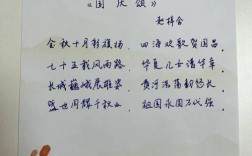 《国庆颂》
金秋十月彩旗扬，四海欢歌贺国昌
七十五载风雨路，华夏儿女谱华章
长城巍峨展雄姿，黄河浩荡韵悠长
盛世同辉千秋业，祖国永固万代强